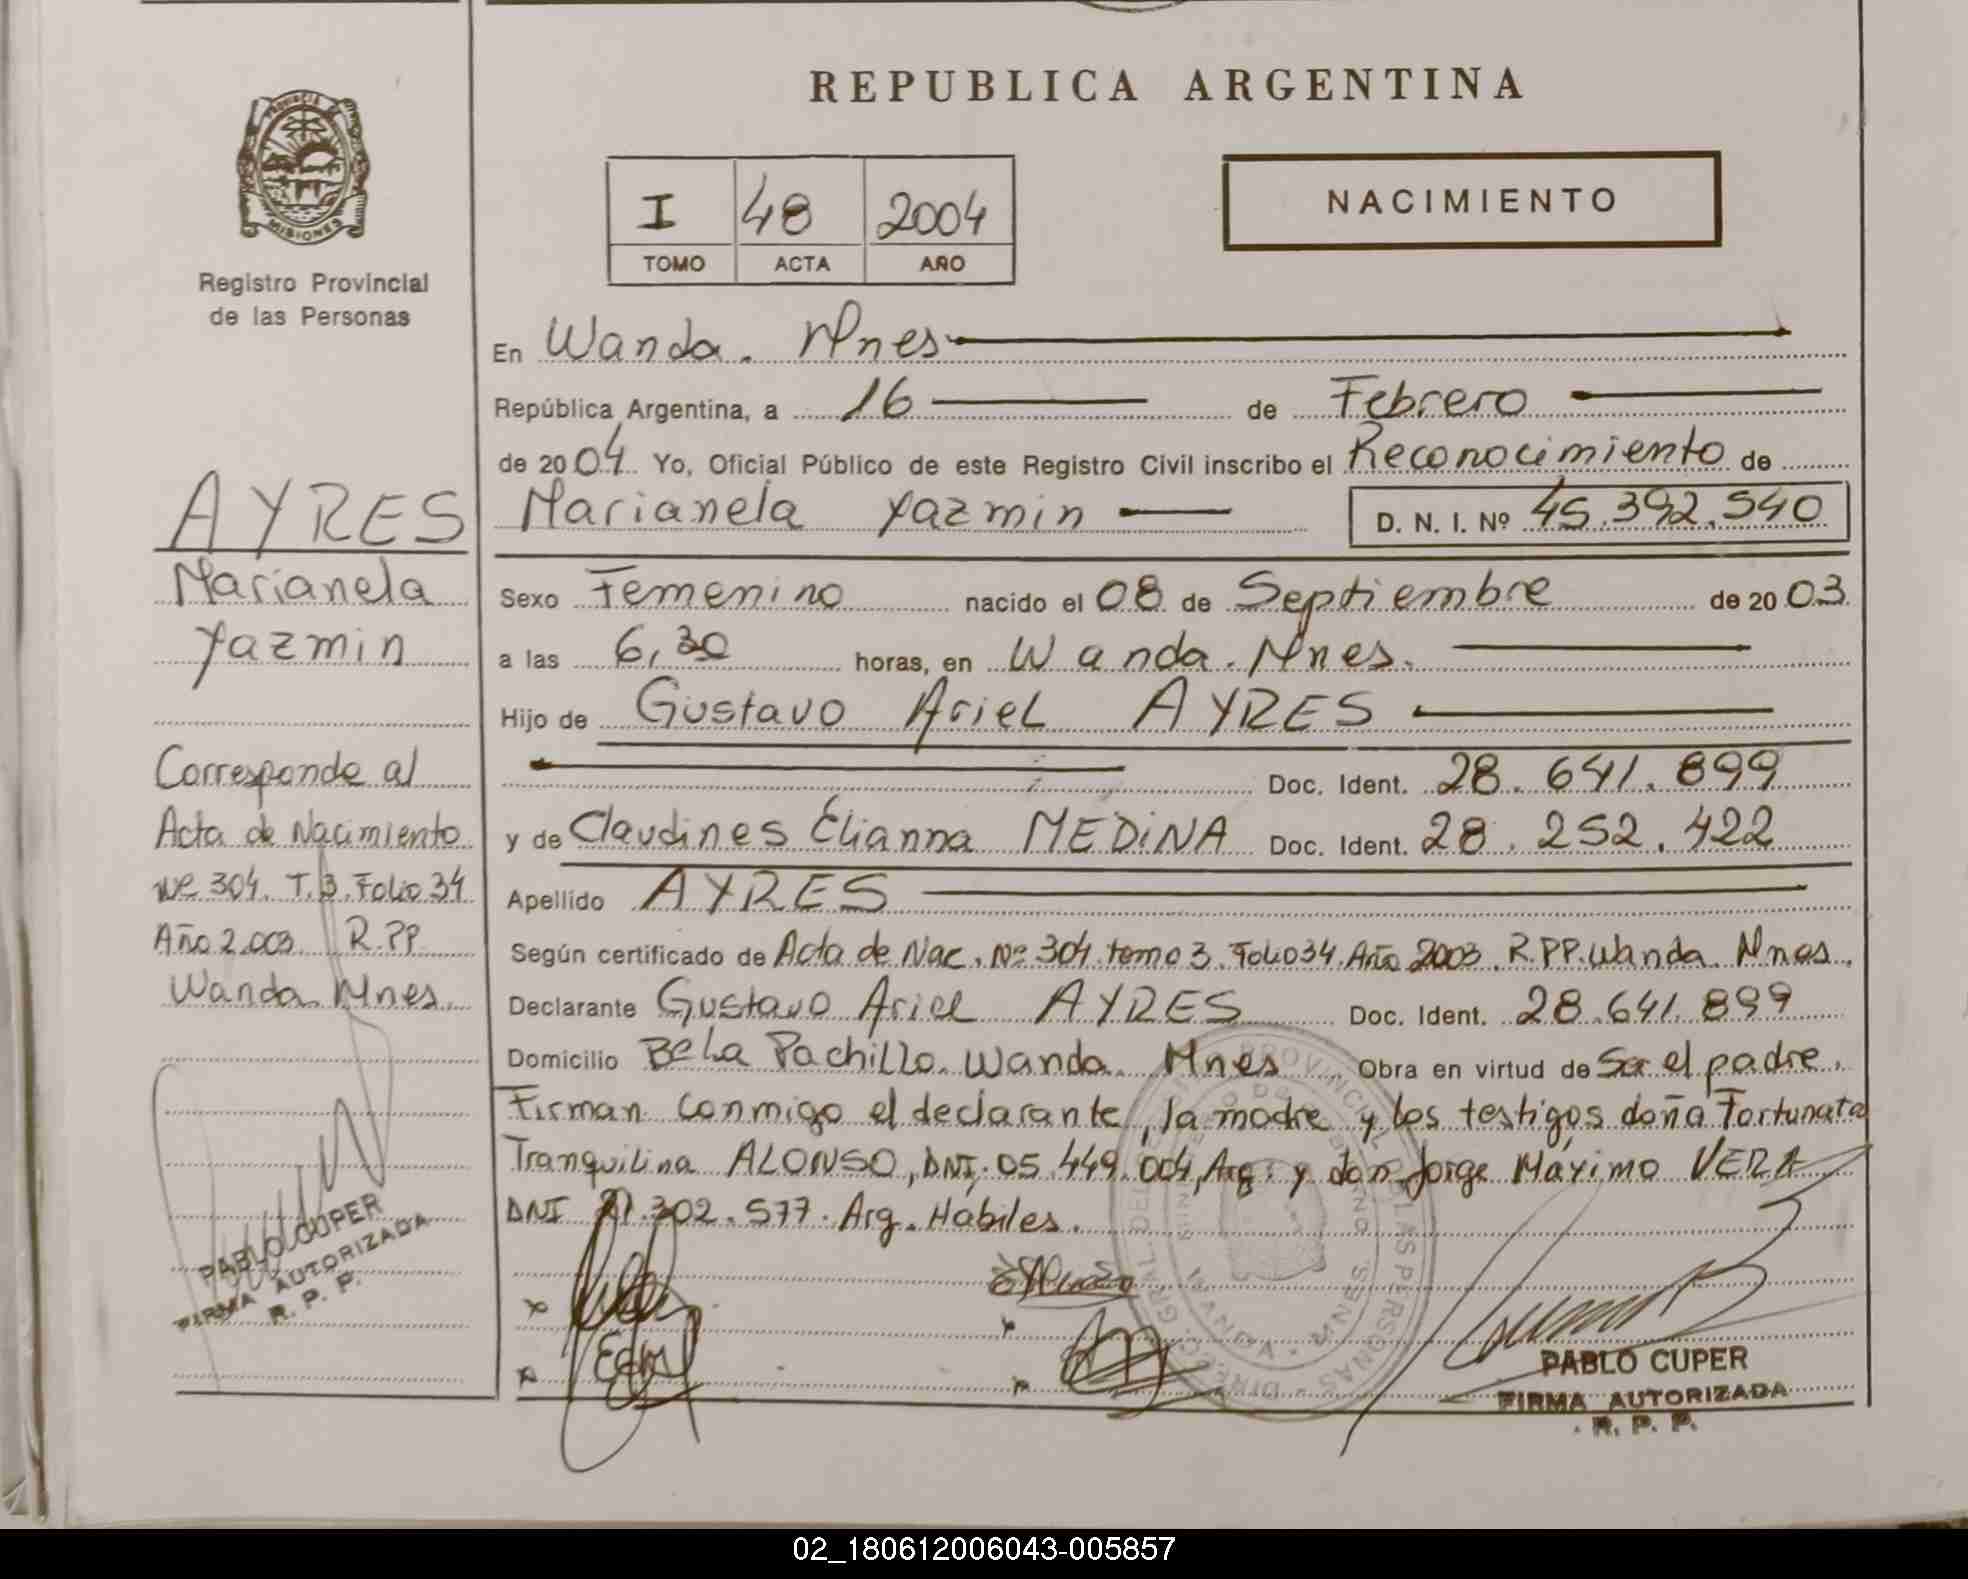 REPUBLICA ARGENTINA
PROVINCIA DE MISIONES
Registro Provincial
de las Personas
I 48 2004
TOMO ACTA AÑO
NACIMIENTO
En Wanda. Mnes
República Argentina, a 16 de Febrero
de 2004 Yo, Oficial Público de este Registro Civil inscribo el Reconocimiento de
Marianela Yazmin D. N. I. Nº 45.392.540
Sexo Femenino nacido el 08 de Septiembre de 2003
a las 6,30 horas, en Wanda. Mnes.
Hijo de Gustavo Ariel AYRES
Doc. Ident. 28.641.899
y de Claudines Elianna MEDINA Doc. Ident. 28.252.422
Apellido AYRES
Según certificado de Acta de Nac. Nº 304. tomo 3. Folio 34. Año 2003. R.PP. Wanda. Mnes.
Declarante Gustavo Ariel AYRES Doc. Ident. 28.641.899
Domicilio Bela Pachillo. Wanda. Mnes Obra en virtud de Ser el padre.
Firman conmigo el declarante, la madre y los testigos doña Fortunata
Tranquilina ALONSO, DNI. 05.449.004, Arg. y don Jorge Máximo VERA
DNI 21.302.577. Arg. Hábiles.
PABLO CUPER
FIRMA AUTORIZADA
R. P. P.
AYRES
Marianela
Yazmin
Corresponde al
Acta de Nacimiento
Nº 304. T. 3. Folio 34
Año 2.003 R.PP.
Wanda. Mnes.
PABLO CUPER
FIRMA AUTORIZADA
R. P. P.
02_180612006043-005857